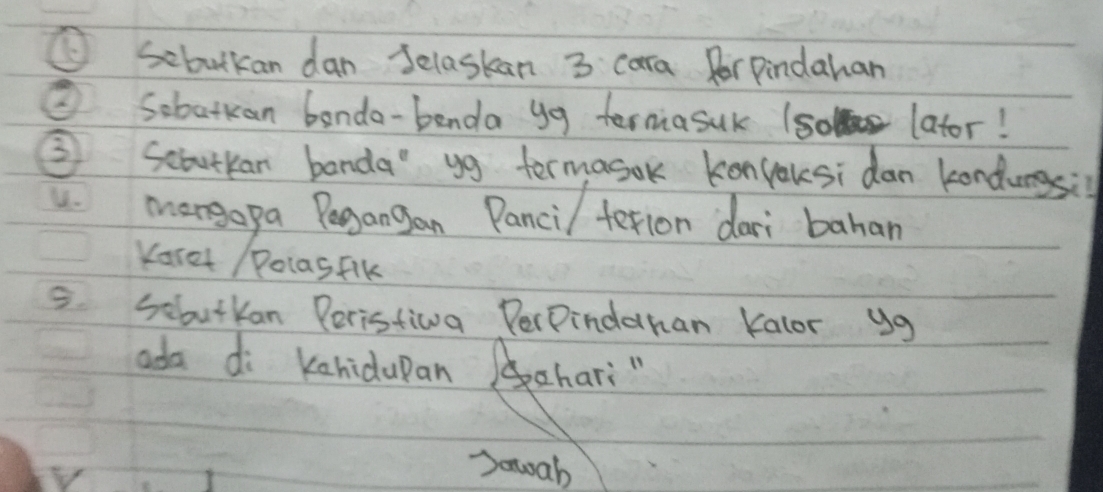 ① Sebutkan dan Jelaskan 3 cara Perpindahan
② Sebatkan benda-benda yg termasuk Iso lator!
③ Sebutkan banda" yg termasok konveksi dan kondungsi!
4. mengapa Pegangan Panci/teflon dari bahan
Karet/Polastik
5. Sebutkan Peristiwa Perpindahan Kalor yg
ada di Kehidupan Sehari"
Jawab